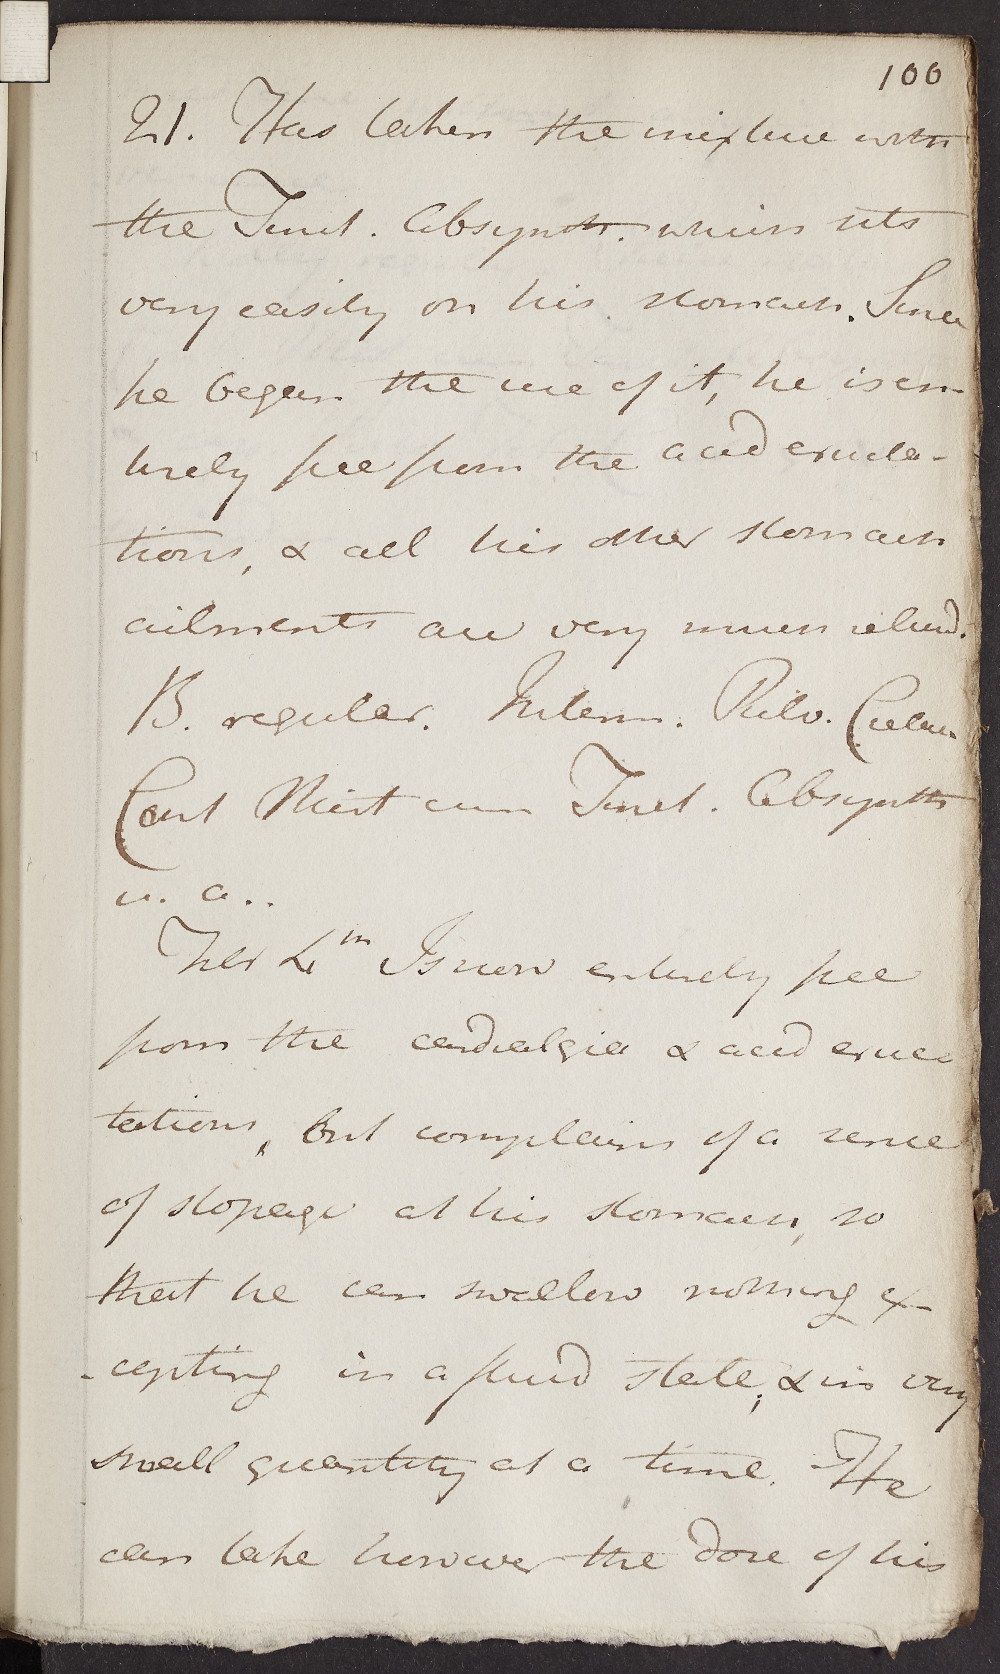 100
21. Has taken the mixture with
the Tinct. Absynth. which sits
very easily on his stomach. Since
he began the use of it, he is en-
tirely free from the acid eructa-
tions, & all his other stomach
ailments are very much reliev'd.
B. regular. Interm. Pulv.
Cont Mist cum Tinct. Absynth
u. a..
4th Is now entirely free
from the cardialgia & acid eruc
tations, but complains of a sense
of stopage at his stomach, so
that he can swallow nothing ex-
-cepting in a fluid state, & in very
small quantity at a time. He
can take however the dose of his